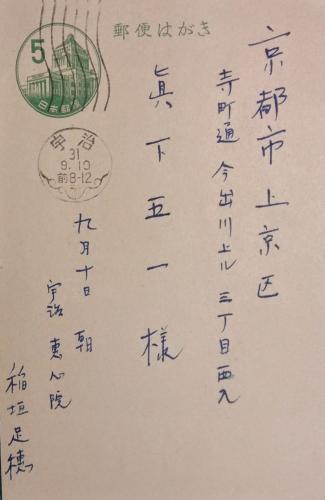 郵便はがき
5
日本郵便
宇治
31
9.10
前8-12
京都市上京区
寺町通今出川上ル三丁目西入
眞下五一様
九月十日朝
宇治恵心院
稲垣足穂